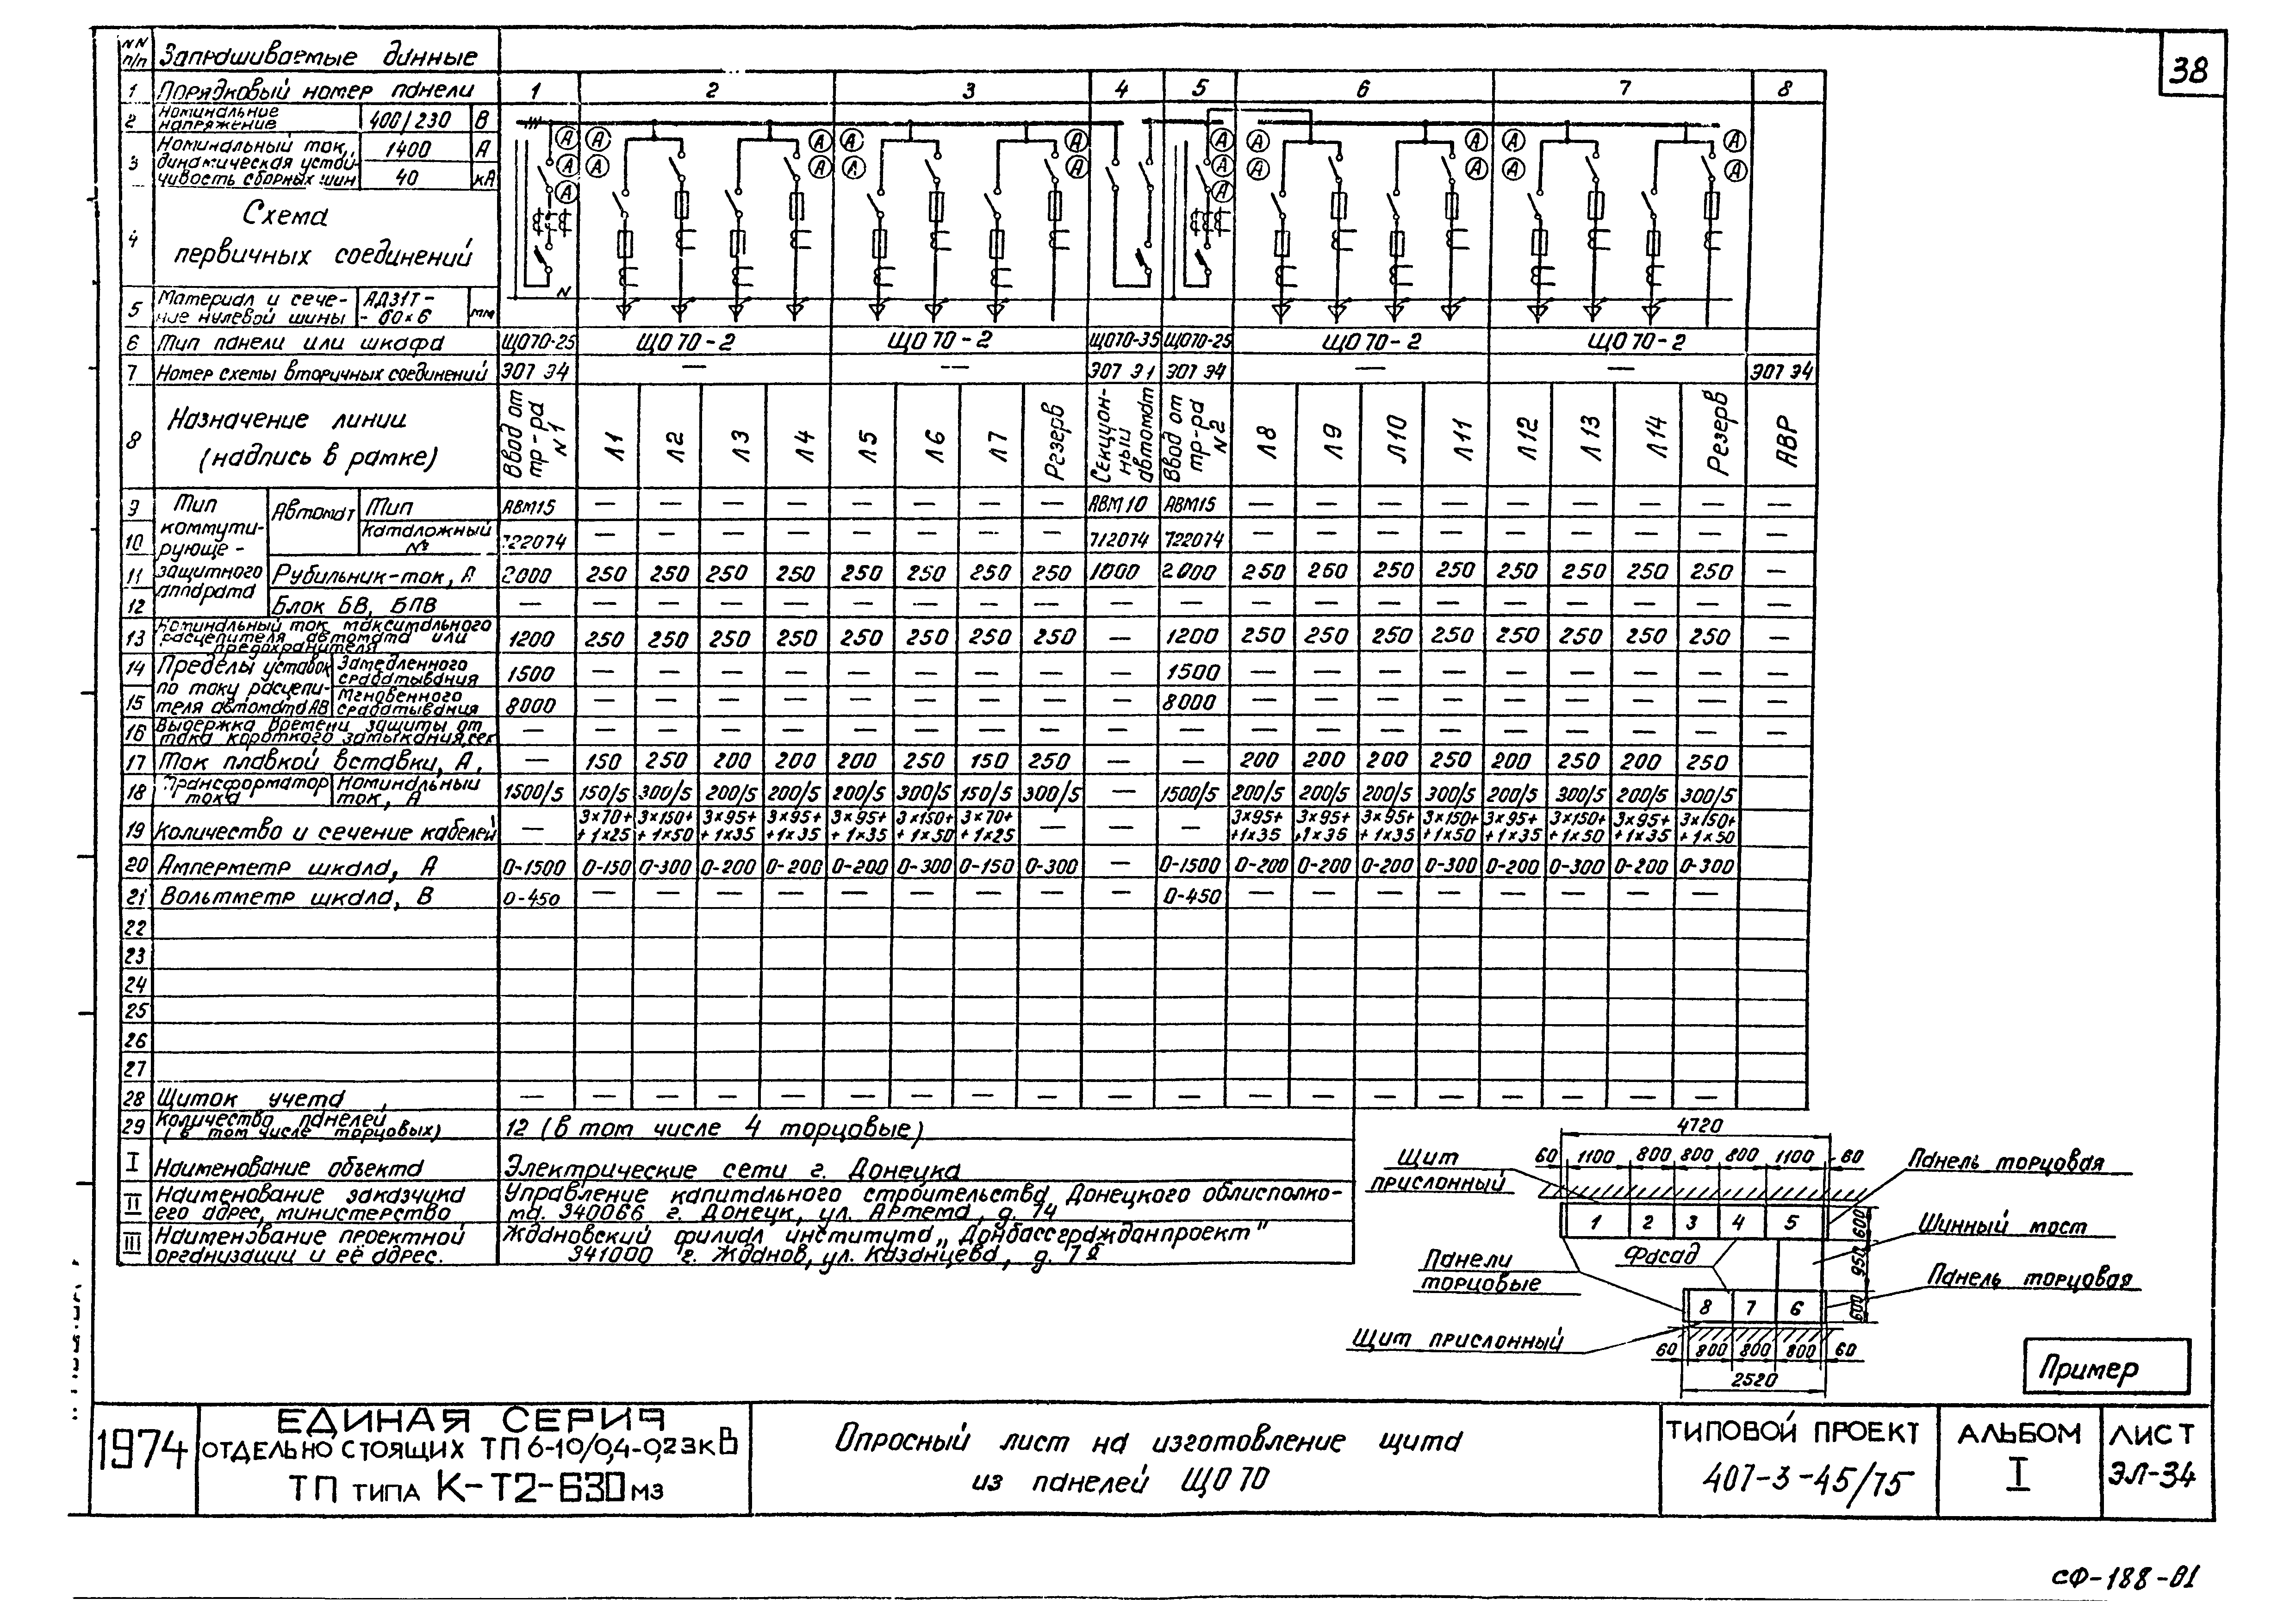 38
NN п/п Запрашиваемые данные
1 Порядковый номер панели 1 2 3 4 5 6 7 8
2 Номинальные напряжение 400/230 В
3 Номинальный ток, динамическая устойчивость сборных шин 1400 А 40 кА
4 Схема первичных соединений
N
5 Материал и сечение нулевой шины АД31Т-60×6 мм
6 Тип панели или шкафа ЩО70-25 ЩО70-2 ЩО70-2 ЩО70-35 ЩО70-25 ЩО70-2 ЩО70-2
7 Номер схемы вторичных соединений ЭО7 Э4 — — ЭО7 Э1 ЭО7 Э4 — — ЭО7 Э4
8 Назначение линии (надпись в рамке) Ввод от тр-ра N1 Л1 Л2 Л3 Л4 Л5 Л6 Л7 Резерв Секционный автомат Ввод от тр-ра N2 Л8 Л9 Л10 Л11 Л12 Л13 Л14 Резерв АВР
Тип коммутирующе-защитного аппарата
9 Автомат Тип АВМ15 — — — — — — — — АВМ10 АВМ15 — — — — — — — — —
10 Каталожный № 722074 — — — — — — — — 712074 722074 — — — — — — — — —
11 Рубильник-ток, А 2000 250 250 250 250 250 250 250 250 1000 2000 250 260 250 250 250 250 250 250 —
12 Блок БВ, БПВ — — — — — — — — — — — — — — — — — — — —
13 Номинальный ток максимального расцепителя автомата или предохранителя 1200 250 250 250 250 250 250 250 250 — 1200 250 250 250 250 250 250 250 250 —
Пределы уставок по току расцепителя автомата АВ
14 Замедленного срабатывания 1500 — — — — — — — — — 1500 — — — — — — — — —
15 Мгновенного срабатывания 8000 — — — — — — — — — 8000 — — — — — — — — —
16 Выдержка времени защиты от тока короткого замыкания, сек — — — — — — — — — — — — — — — — — — — —
17 Ток плавкой вставки, А, — 150 250 200 200 200 250 150 250 — — 200 200 200 250 200 250 200 250
18 Трансформатор тока Номинальный ток, А 1500/5 150/5 300/5 200/5 200/5 200/5 300/5 150/5 300/5 — 1500/5 200/5 200/5 200/5 300/5 200/5 300/5 200/5 300/5
19 Количество и сечение кабелей — 3×70+ +1×25 3×150+ +1×50 3×95+ +1×35 3×95+ +1×35 3×95+ +1×35 3×150+ +1×50 3×70+ +1×25 — — — 3×95+ +1×35 3×95+ +1×35 3×95+ +1×35 3×150+ +1×50 3×95+ +1×35 3×150+ +1×50 3×95+ +1×35 3×150+ +1×50
20 Амперметр шкала, А 0-1500 0-150 0-300 0-200 0-200 0-200 0-300 0-150 0-300 — 0-1500 0-200 0-200 0-200 0-300 0-200 0-300 0-200 0-300
21 Вольтметр шкала, В 0-450 — — — — — — — — — 0-450 — — — — — — — —
22
23
24
25
26
27
28 Щиток учета — — — — — — — — — — — — — — — — — — — —
29 Количество панелей (в том числе торцовых) 12 (в том числе 4 торцовые)
I Наименование объекта Электрические сети г. Донецка
II Наименование заказчика его адрес, министерство Управление капитального строительства Донецкого облисполкома. 340066 г. Донецк, ул. Артема, д. 74
III Наименование проектной организации и её адрес. Ждановский филиал института „Донбассгражданпроект" 341000 г. Жданов, ул. Казанцева, д. 7б
4720
60 1100 800 800 800 1100 60
Щит прислонный
Панель торцовая
1 2 3 4 5
600
Шинный мост
Фасад
950
Панели торцовые
Панель торцовая
8 7 6
600
Щит прислонный
60 800 800 800 60
2520
Пример
1974
ЕДИНАЯ СЕРИЯ
ОТДЕЛЬНО СТОЯЩИХ ТП 6-10/0,4-0,23кВ
ТП ТИПА К-Т2-630м3
Опросный лист на изготовление щита
из панелей ЩО70
ТИПОВОЙ ПРОЕКТ
407-3-45/75
АЛЬБОМ
I
ЛИСТ
ЭЛ-34
СФ-188-01